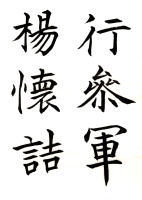 行參軍
楊懷詰